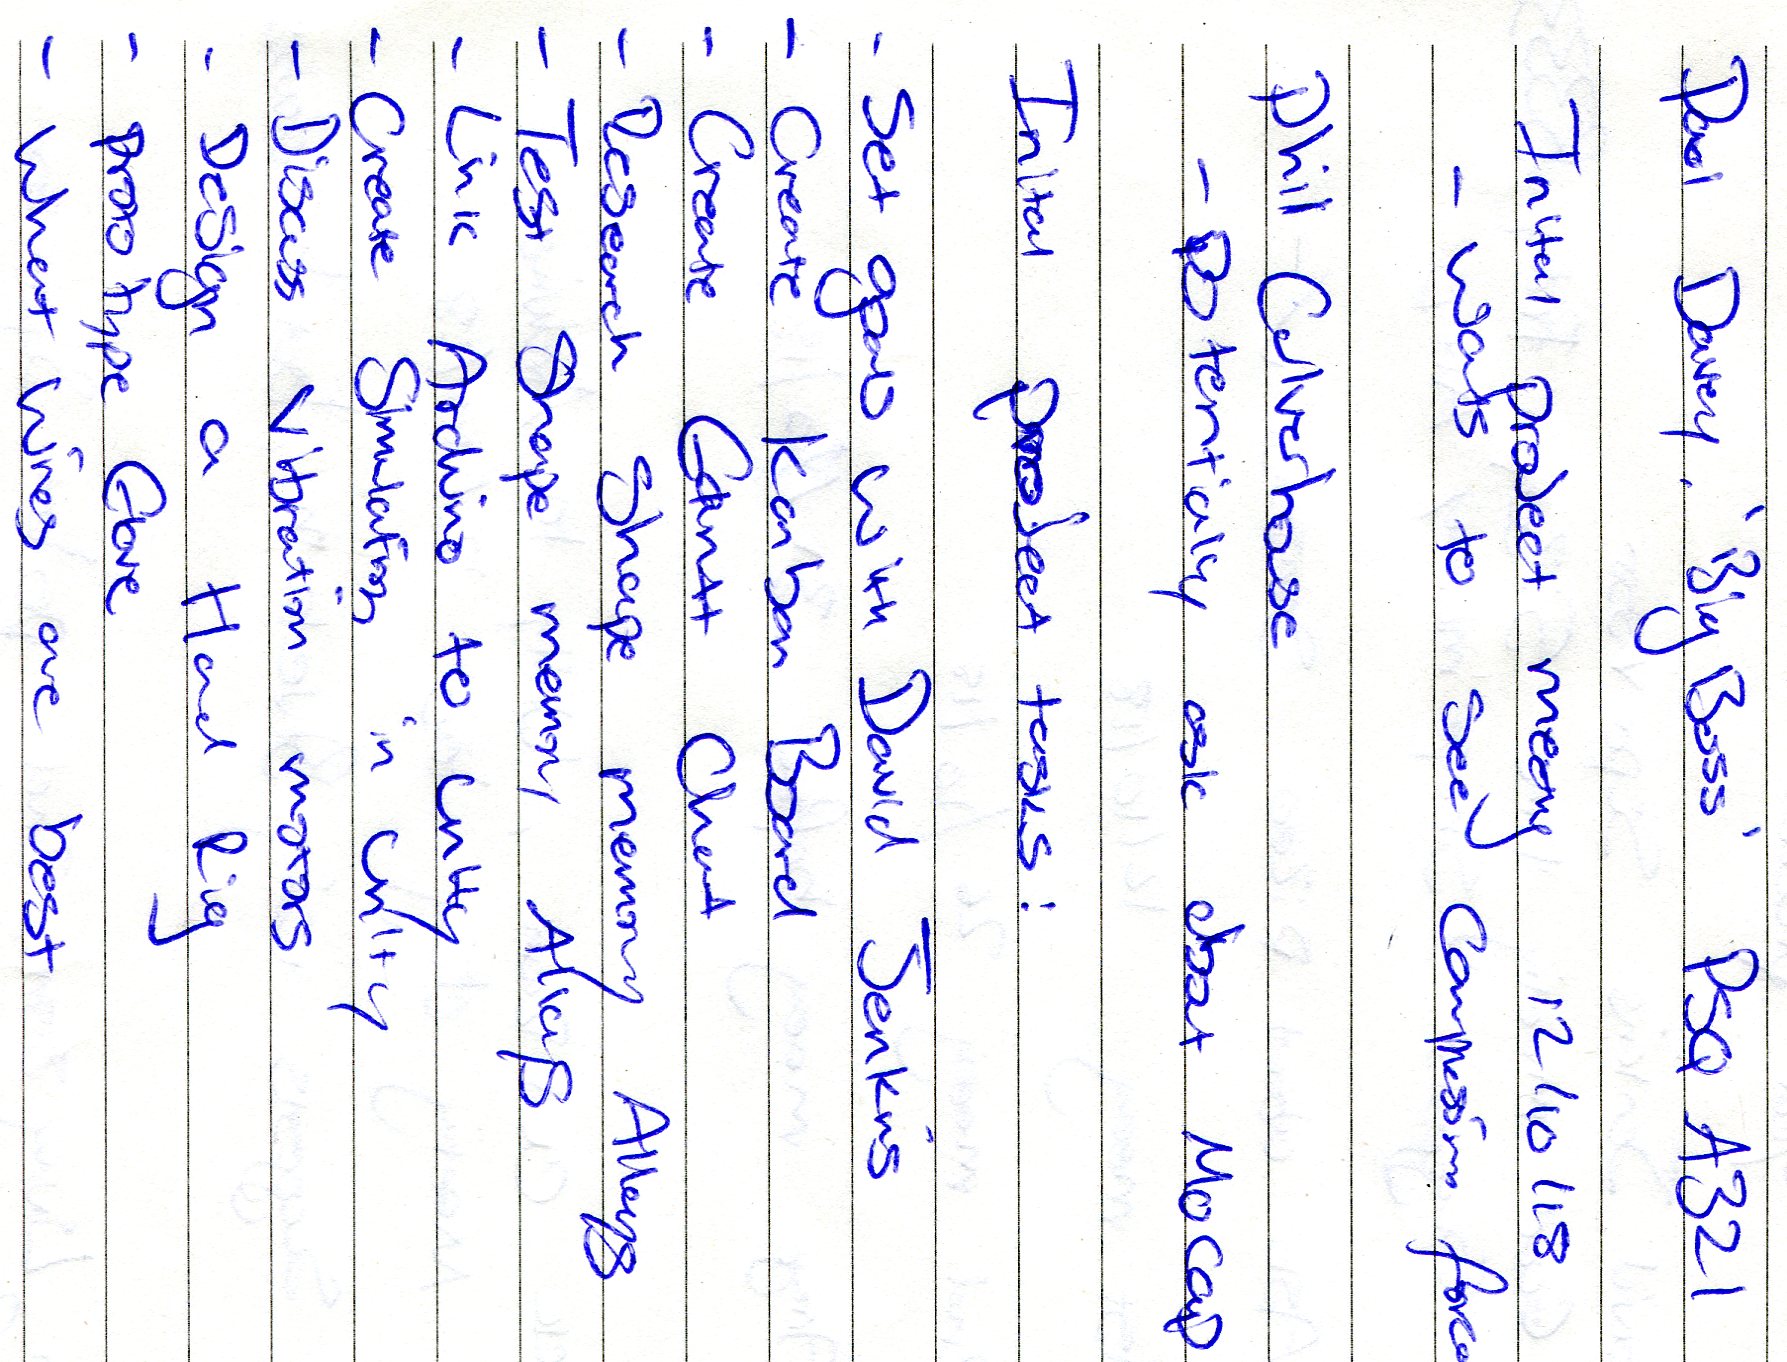 Paul Davey, 'Big Boss' PSQ A321
Inital Project meeting 12/10/18
- Wants to see Compression force
Phil Culverhouse
- Potentially ask about MoCap
Inital project tasks:
- Set goals with David Jenkins
- Create Kanban Board
- Create Gantt Chart
- Research Shape memory Alloys
- Test Shape memory Alloys
- Link Arduino to Unity
- Create Simulation in Unity
- Discuss Vibration motors
- Design a Hand Rig
- Prototype Glove
- What Wires are best